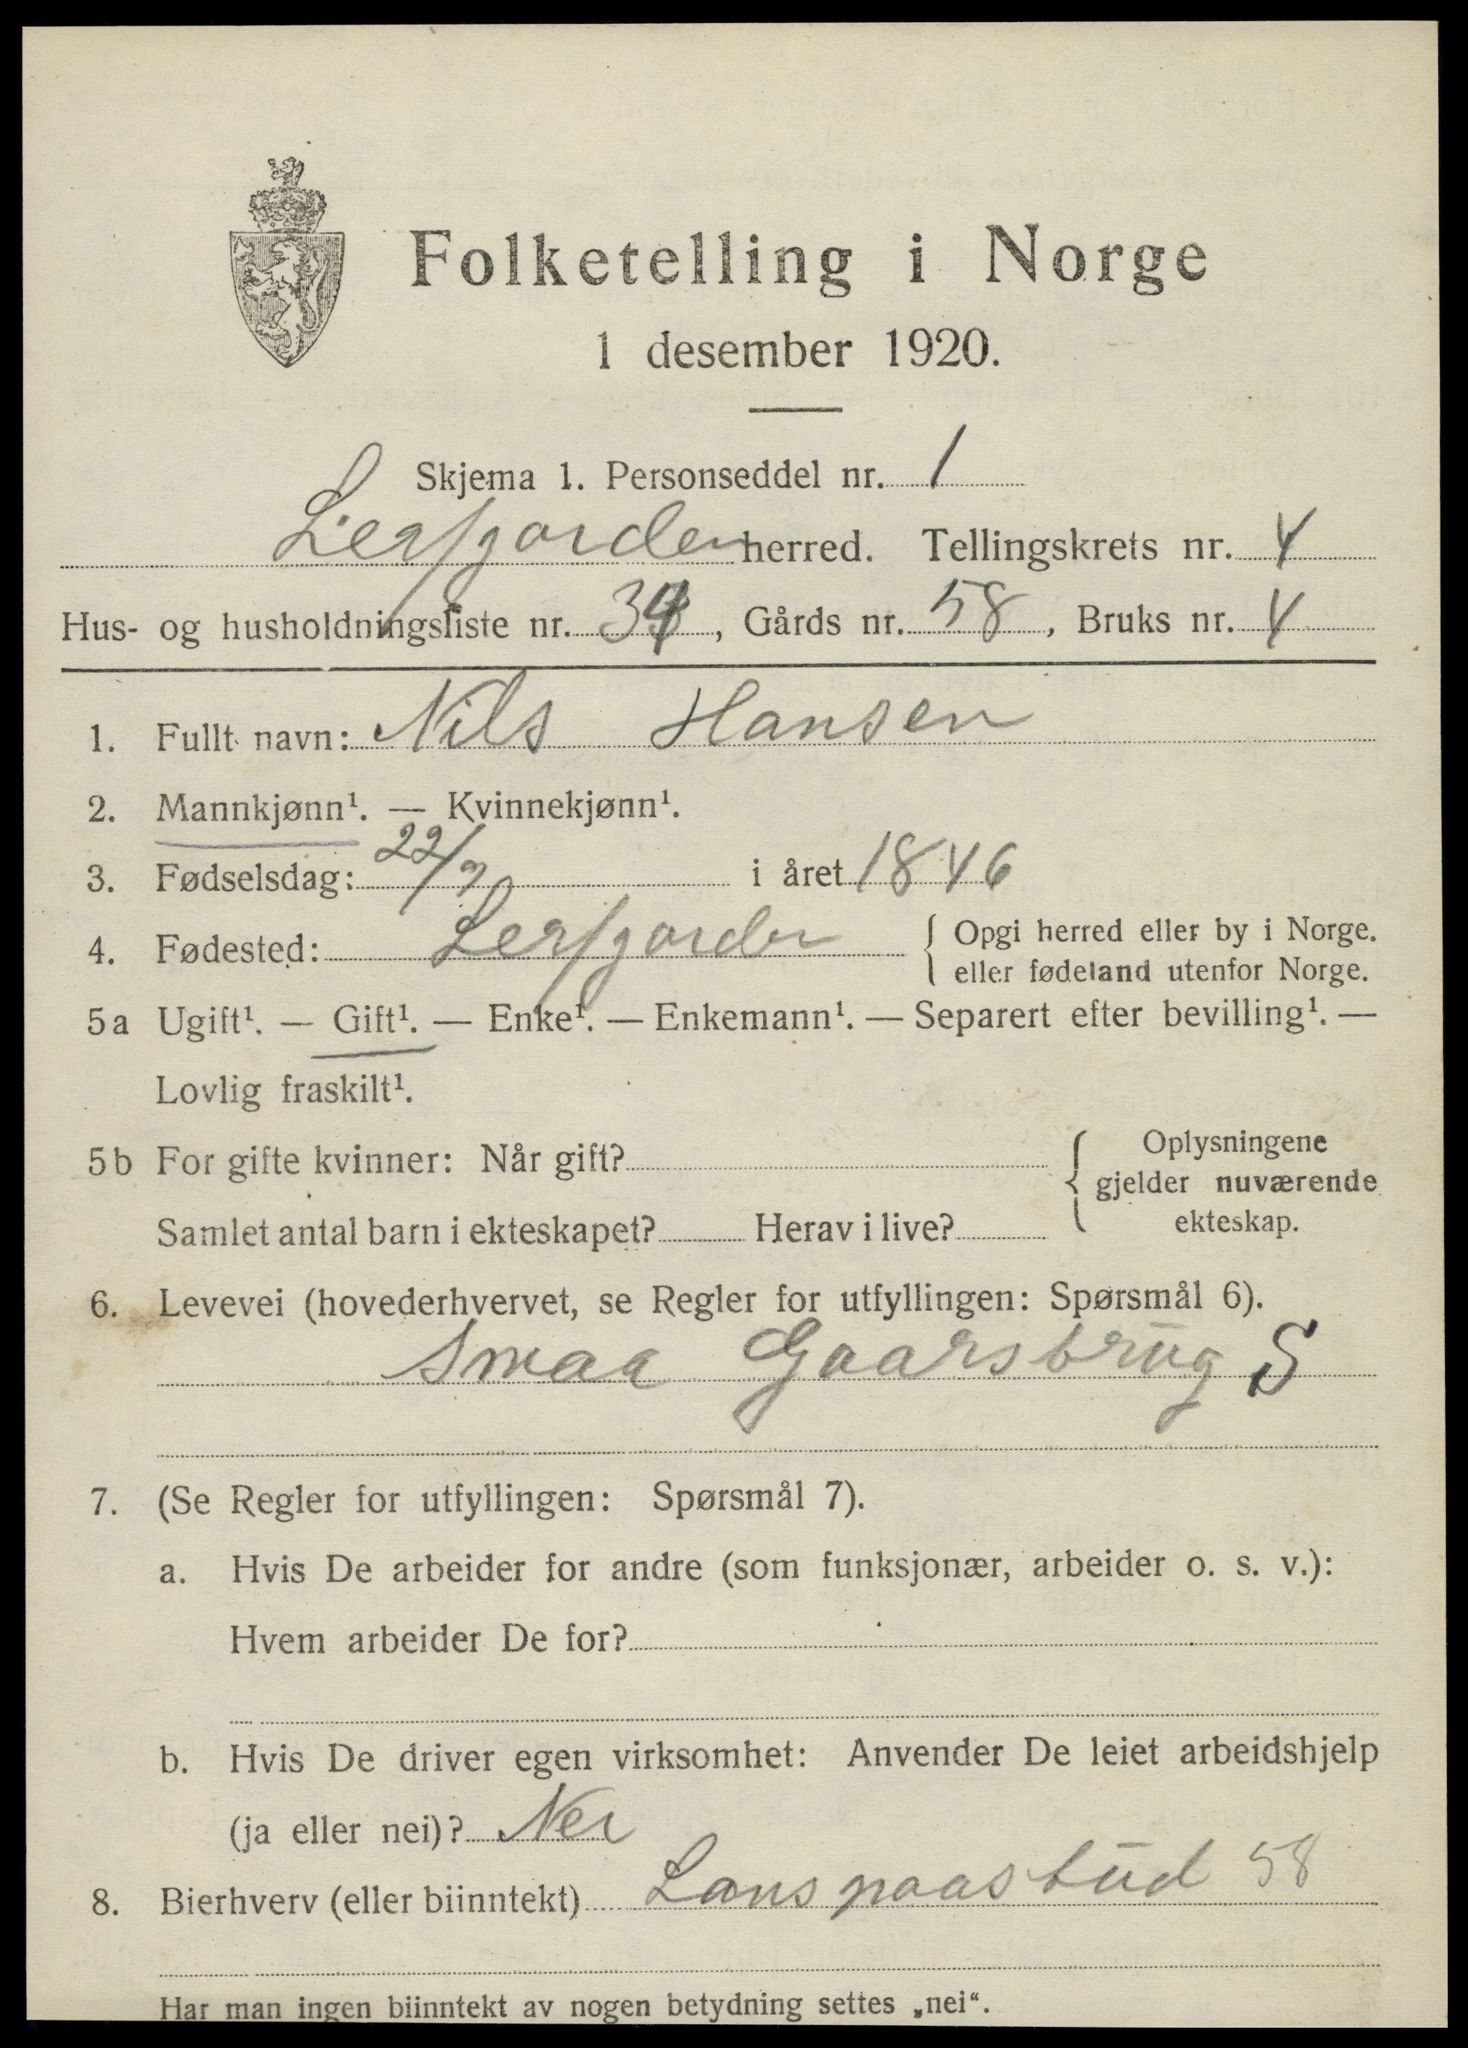 Folketelling i Norge
1 desember 1920.
Skjema 1. Personseddel nr. 1
Leirfjorden herred. Tellingskrets nr. 4
Hus- og husholdningsliste nr. 34, Gårds nr. 58, Bruks nr. 4
1. Fullt navn: Nils Hansen
2. Mannkjønn¹. — Kvinnekjønn¹.
3. Fødselsdag: 22/9 i året 1846
4. Fødested: Leirfjorden { Opgi herred eller by i Norge.
eller fødeland utenfor Norge.
5a Ugift¹. — Gift¹. — Enke¹. — Enkemann¹. — Separert efter bevilling¹. —
Lovlig fraskilt¹.
5b For gifte kvinner: Når gift? { Oplysningene
gjelder nuværende
Samlet antal barn i ekteskapet? Herav i live? ekteskap.
6. Levevei (hovederhvervet, se Regler for utfyllingen: Spørsmål 6).
Smaa Gaarsbrug S
7. (Se Regler for utfyllingen: Spørsmål 7).
a. Hvis De arbeider for andre (som funksjonær, arbeider o. s. v.):
Hvem arbeider De for?
b. Hvis De driver egen virksomhet: Anvender De leiet arbeidshjelp
(ja eller nei)? Nei
8. Bierhverv (eller biinntekt) 58
Har man ingen biinntekt av nogen betydning settes „nei“.